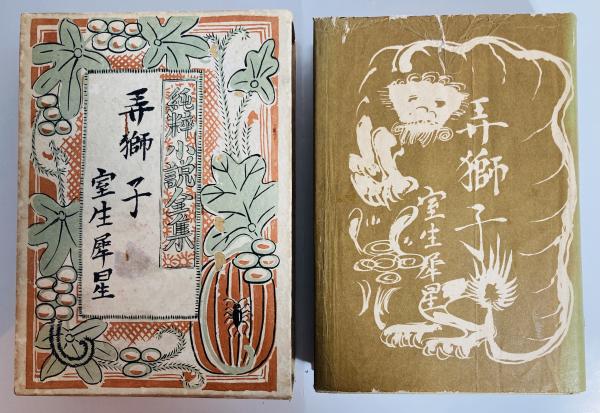 純粋小説全集
弄獅子
室生犀星
弄獅子
室生犀星